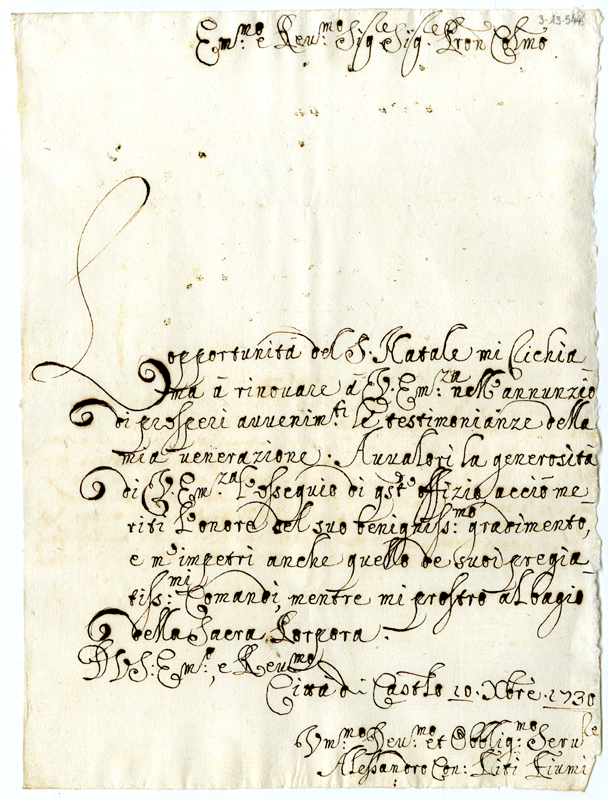 3-13-544
Em:mo e Reu:mo Sig:e Sig:e Pron Colmo
L'opportunità del S. Natale mi richia-
ma à rinouare à V. Em:za nell'annunzio
di prosperi auuenim:ti le testimonianze della
mia uenerazione. Auualori la generosità
di V. Em:za l'ossequio di qsto offizio acciò me-
riti l'onore del suo benigniss:mo gradimento,
e m'impetri anche quello de suoi pregia-
tiss:mi Comandi, mentre mi prostro al bagio
della Sacra Porpora.
D V S: Em:a, e Reu:ma
Città di Castello 10. Xbre. 1730
Vm:mo Deu:mo et Obblig:mo Seru:re
Alessandro Con: